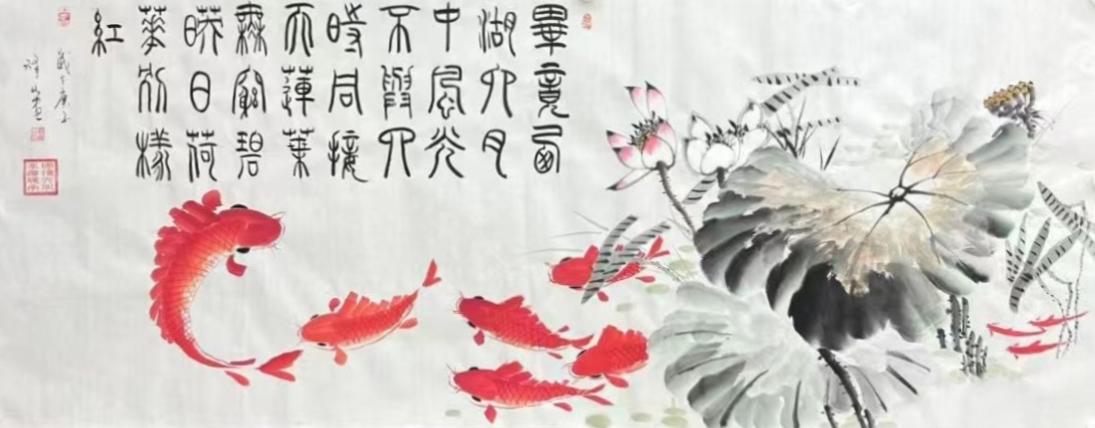 畢竟西
湖六月
中風光
不與四
時同接
天蓮葉
無窮碧
映日荷
華別樣
紅
庚子